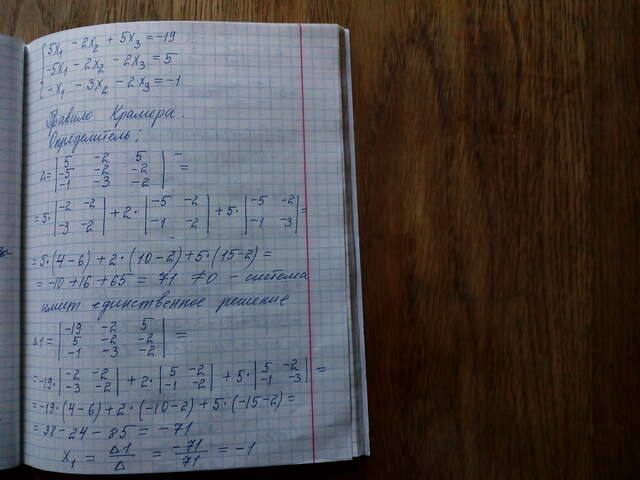 5x₁ - 2x₂ + 5x₃ = -19
-5x₁ - 2x₂ - 2x₃ = 5
-x₁ - 3x₂ - 2x₃ = -1
Правило Крамера.
Определитель:
Δ = | 5 -2 5 | =
| -5 -2 -2 |
| -1 -3 -2 |
= 5· | -2 -2 | + 2· | -5 -2 | + 5· | -5 -2 | =
| -3 -2 | | -1 -2 | | -1 -3 |
= 5·(4-6) + 2·(10-2) + 5·(15-2) =
= -10 + 16 + 65 = 71 ≠ 0 - система
имеет единственное решение
Δ1 = | -19 -2 5 | =
| 5 -2 -2 |
| -1 -3 -2 |
= -19· | -2 -2 | + 2· | 5 -2 | + 5· | 5 -2 | =
| -3 -2 | | -1 -2 | | -1 -3 |
= -19·(4-6) + 2·(-10-2) + 5·(-15-2) =
= 38 - 24 - 85 = -71
x₁ = Δ1/Δ = -71/71 = -1